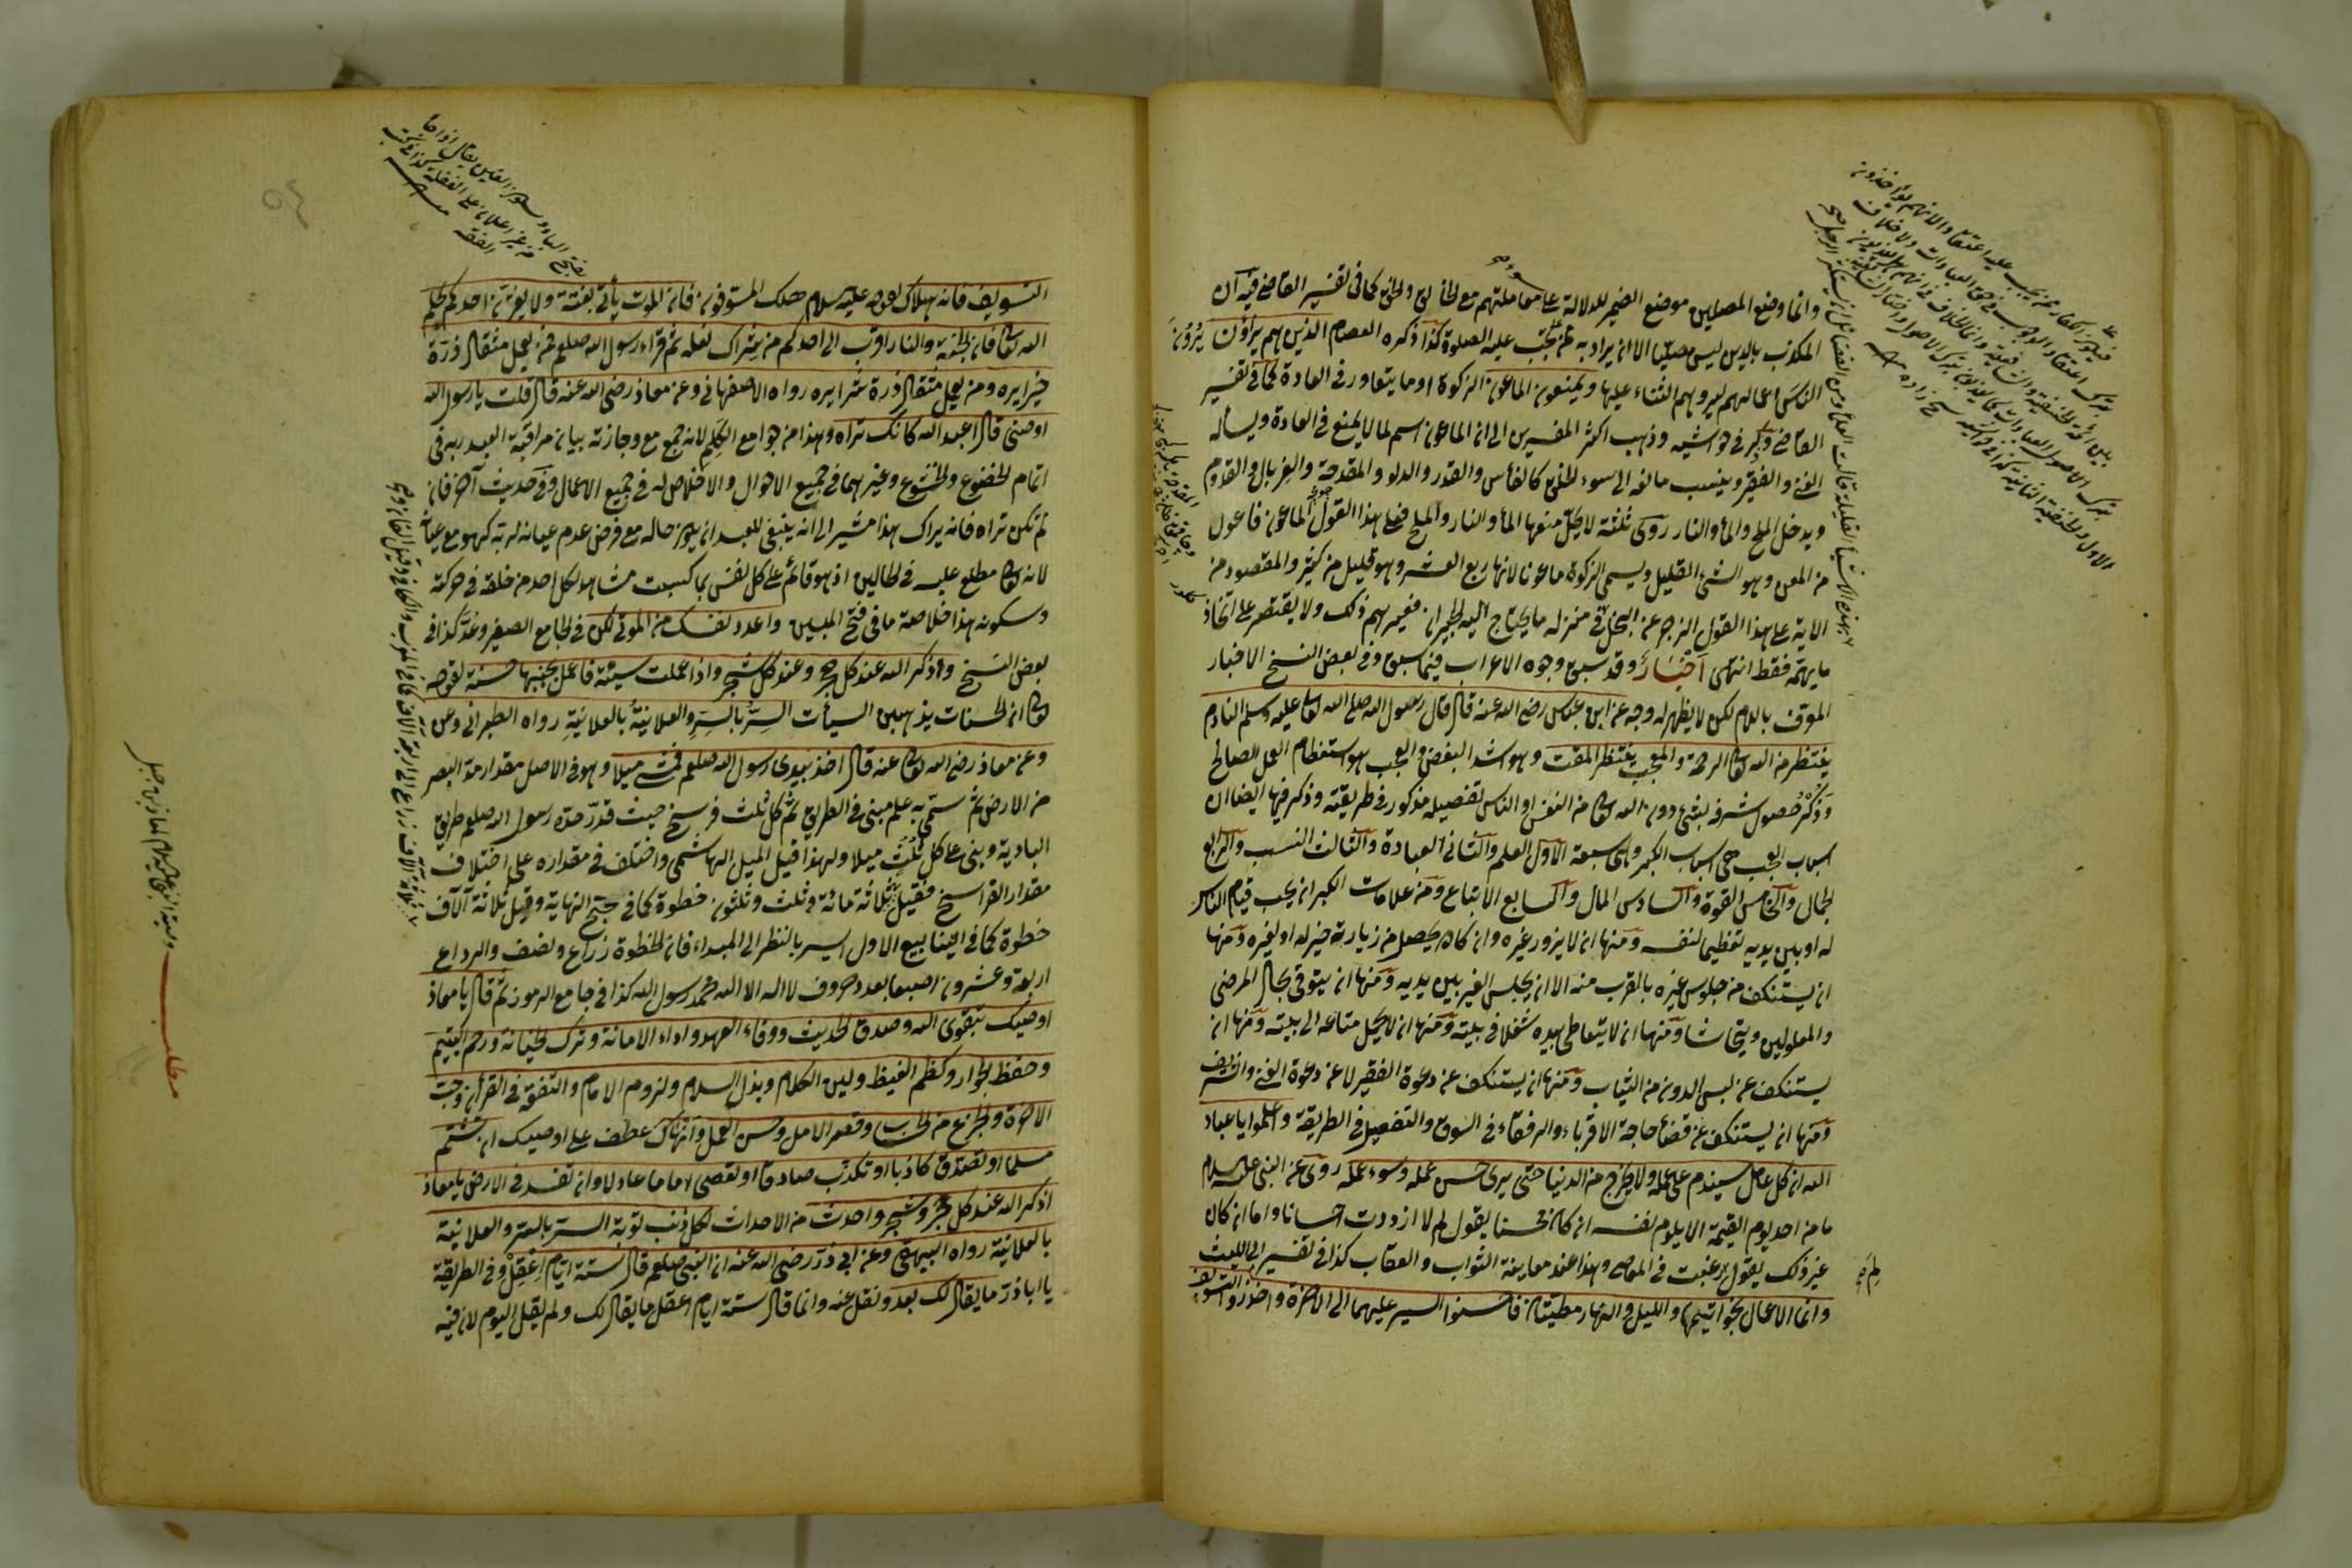 وانما وضع المصلين موضع الضمير للدلالة على معاملتهم مع الخالق والخلق كما فى تفسير القاضى فيه ان
المكذب بالدين ليس مصليا الا ان يراد به من يجب عليه الصلوة كذا ذكره العصام الذين هم يراؤن يرون
الناس اعمالهم ليروهم الثناء عليها ويمنعون الماعون الزكوة او ما يتعاور فى العادة كما فى تفسير
القاضى وذكر فى حواشيه وذهب اكثر المفسرين الى ان الماعون اسم لما لا يمنع فى العادة ويسأله
الغنى والفقير وينسب مانعه الى سوء الخلق كالفأس والقدر والدلو والمقدحة والغربال والقدوم
ويدخل الملح والمأ والنار روى ثلثة لا يحل منعها المأ والنار والملح فعلى هذا القول الماعون فاعول
من المعن وهو الشئ القليل ويسمى الزكوة ماعونا لانها ربع العشر وهو قليل من كثير والمقصود من
الاية على هذا القول الزجر عن البخل فى منزله ما يحتاج اليه الجيران فيعيرهم ذلك ولا يقتصر على اتخاذ
ما يهمه فقط انتهى اخبار وقد سبق وجوه الاعراب فيما سبق وفى بعض النسخ الاخبار
المعرف باللام لكن لا يظهر له وجه عن ابن عباس رضى الله عنه قال قال رسول الله صلى الله تعالى عليه وسلم النادم
ينتظر من الله تعالى الرحمة والمعجب ينتظر المقت وهو اشد البغض والعجب هو استعظام العمل الصالح
وذكر حصول شرفه بشئ دون الله تعالى من النفس او الناس تفصيله مذكور فى طريقته وذكر فيها ايضا ان
اسباب العجب هى اسباب الكبر وهى سبعة الاول العلم والثانى العبادة والثالث النسب والرابع
الجمال والخامس القوة والسادس المال والسابع الاتباع ومن علامات الكبر ان يحب قيام الناس
له او بين يديه تعظيما لنفسه ومنها ان لا يزور غيره وان كان يحصل من زيارته خير له او لغيره ومنها
ان يستنكف من جلوس غيره بالقرب منه الا ان يجلس الغير بين يديه ومنها ان يتوقى مجال المرضى
والمعلولين ويتحاشا ومنها ان لا يتعاطى بيده شغلا فى بيته ومنها ان لا يحمل متاعه الى بيته ومنها ان
يستنكف عن لبس الدون من الثياب ومنها ان يستنكف عن دعوة الفقير لا عن دعوة الغنى والشريف
ومنها ان يستنكف عن قضأ حاجة الاقرباء والرفقاء فى السوق والتفصيل فى الطريقة واعلموا يا عباد
الله ان كل عامل سيندم على عمله ولا يخرج من الدنيا حتى يرى حسن عمله وسوء عمله روى عن النبى عليه السلام
ما من احد يوم القيمة الا يلوم نفسه ان كان محسنا يقول لم لا ازددت احسانا واما ان كان
غير ذلك يقول لم رغبت فى المعاصى وهذا عند معاينة الثواب والعقاب كذا فى تفسير ابى الليث
وانما الاعمال بخواتيمها والليل والنهار مطيتان فاحسنوا السير عليهما الى الاخرة واحذروا التسويف
التسويف فانه هلاك لقوله عليه السلام هلك المسوفون فان الموت يأتى بغتة ولا يغترن احدكم بحلم
الله تعالى فان الجنة والنار اقرب الى احدكم من شراك نعله ثم قراء رسول الله صلعم فمن يعمل مثقال ذرة
خيرا يره ومن يعمل مثقال ذرة شرا يره رواه الاصفهانى وعن معاذ رضى الله عنه قال قلت يا رسول الله
اوصنى قال اعبد الله كانك تراه وهذا من جوامع الكلم لانه جمع مع وجازته بيان مراقبة العبد ربه فى
اتمام الخضوع والخشوع وغيرهما فى جميع الاحوال والاخلاص له فى جميع الاعمال وفى حديث آخر فان
لم تكن تراه فانه يراك هذا مشير الى انه ينبغى للعبد ان يكون حاله مع فرض عدم عيانه لربه كهو مع عيانه
لانه تعالى مطلع عليه فى الحالين اذ هو قائم على كل نفس بما كسبت مشاهد لكل احد من خلقه فى حركته
وسكونه هذا خلاصة ما فى فتح المبين واعدد نفسك من الموتى لكن فى الجامع الصغير وعد كذا فى
بعض النسخ واذكر الله عند كل حجر وعند كل شجر واذا عملت سيئة فاعمل بجنبها حسنة لقوله
تعالى ان الحسنات يذهبن السيأت السر بالسر والعلانية بالعلانية رواه الطبرانى وعن
وعن معاذ رضى الله تعالى عنه قال اخذ بيدى رسول الله صلعم فمشى ميلا وهو فى الاصل مقدار مد البصر
من الارض ثم سمى به علم مبنى فى الطريق ثم كل ثلث فرسخ حيث قدر حده رسول الله صلعم طريق
البادية وبنى على كل ثلث ميلا ولهذا قيل الميل الهاشمى واختلف فى مقداره على اختلاف
مقدار الفراسخ فقيل ثلاثة مائة وثلث وثلثون خطوة كما فى النهاية وقيل ثلاثة آلاف
خطوة كما فى الينابيع الاول ايسر بالنظر الى المبداء فان الخطوة ذراع ونصف والذراع
اربعة وعشرون اصبعا بعدد حروف لا اله الا الله محمد رسول الله كذا فى جامع الرموز ثم قال يا معاذ
اوصيك بتقوى الله وصدق الحديث ووفاء العهد واداء الامانة وترك الخيانة ورحم اليتيم
وحفظ الجوار وكظم الغيظ ولين الكلام وبذل السلام ولزوم الامام والتفقه فى القرأن وحب
الاخرة والجزع من الحساب وقصر الامل وحسن العمل وانهاك عطف على اوصيك ان تشتم
مسلما او تصدق كاذبا او تكذب صادقا او تعصى اماما عادلا وان تفسد فى الارض يا معاذ
اذكر الله عند كل حجر وشجر واحدث من الاحداث لكل ذنب توبة السر بالسر والعلانية
بالعلانية رواه البيهقى وعن ابى ذر رضى الله عنه ان النبى صلعم قال ستة ايام اعقل وفى الطريقة
يا اباذر ما يقال لك بعد ونقل عنه وانما قال ستة ايام اعقل ما يقال لك ولم يقل اليوم لان فيه
مطلب